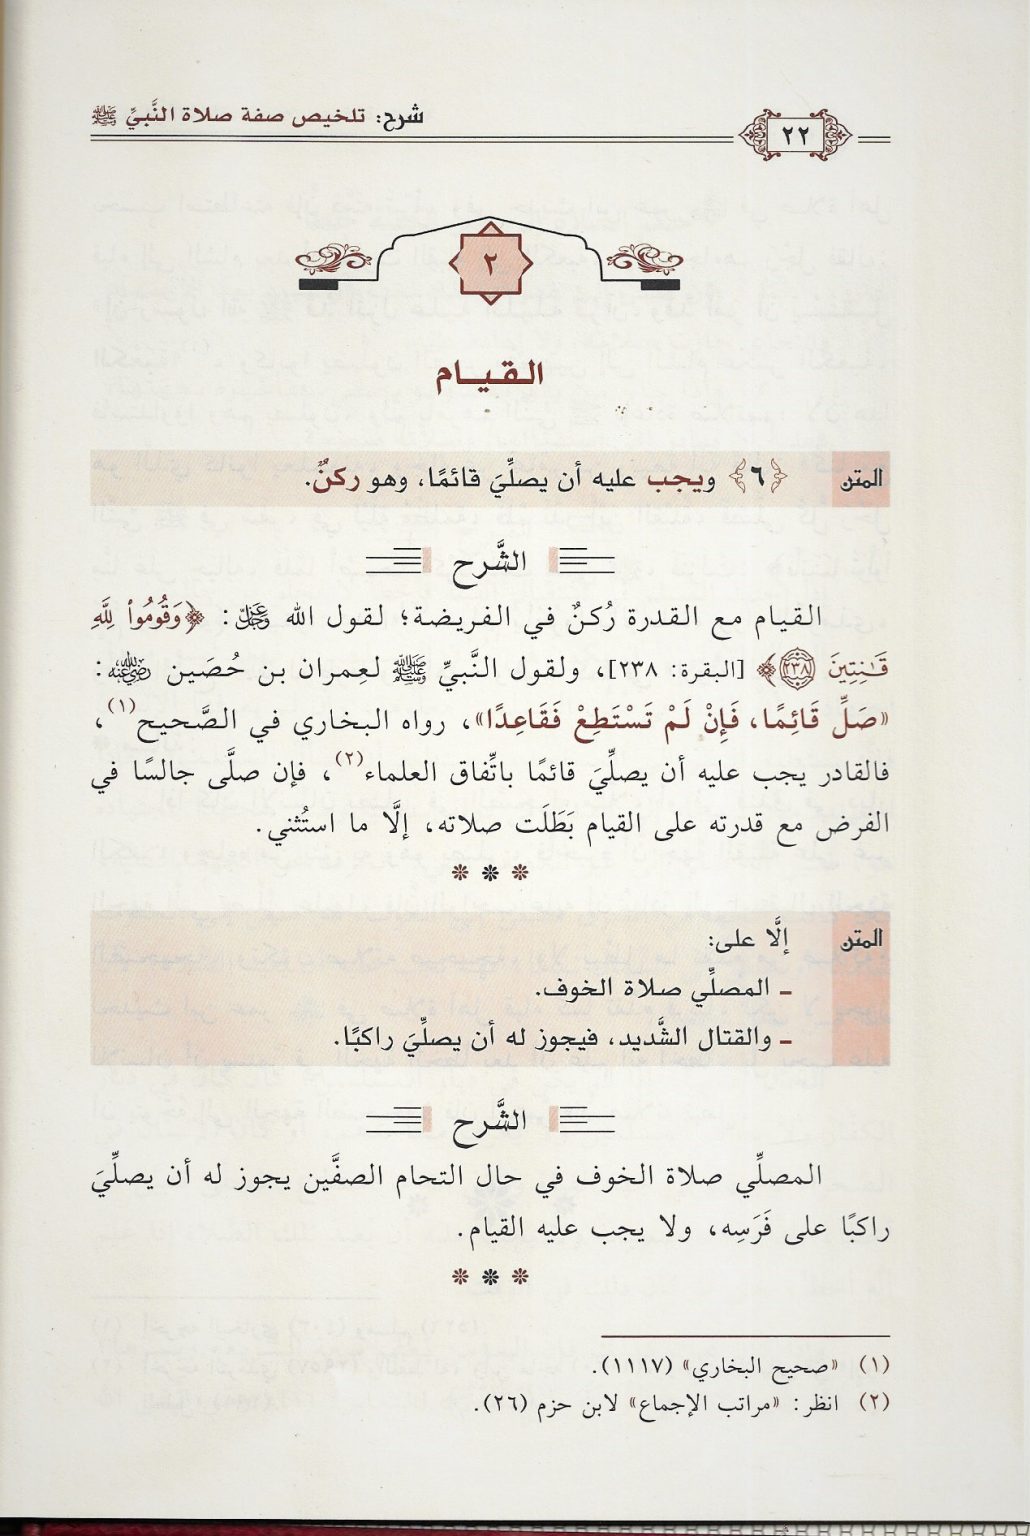 ٢٢
شرح: تلخيص صفة صلاة النَّبيِّ ﷺ
٢
القيـام
المتن ﴿٦﴾ ويجب عليه أن يصلِّيَ قائمًا، وهو ركنٌ.
الشَّرح
القيام مع القدرة رُكنٌ في الفريضة؛ لقول الله عَزَّ وَجَلَّ: ﴿وَقُومُوا۟ لِلَّهِ
قَـٰنِتِينَ ٢٣٨﴾ [البقرة: ٢٣٨]، ولقول النَّبيِّ ﷺ لعِمران بن حُصَين رضي الله عنه:
«صَلِّ قَائِمًا، فَإِنْ لَمْ تَسْتَطِعْ فَقَاعِدًا»، رواه البخاري في الصَّحيح(١)،
فالقادر يجب عليه أن يصلِّيَ قائمًا باتِّفاق العلماء(٢)، فإن صلَّى جالسًا في
الفرض مع قدرته على القيام بَطَلَت صلاته، إلَّا ما استُثني.
* * *
المتن إلَّا على:
- المصلِّي صلاة الخوف.
- والقتال الشَّديد، فيجوز له أن يصلِّيَ راكبًا.
الشَّرح
المصلِّي صلاة الخوف في حال التحام الصفَّين يجوز له أن يصلِّيَ
راكبًا على فَرَسِه، ولا يجب عليه القيام.
* * *
(١) «صحيح البخاري» (١١١٧).
(٢) انظر: «مراتب الإجماع» لابن حزم (٢٦).